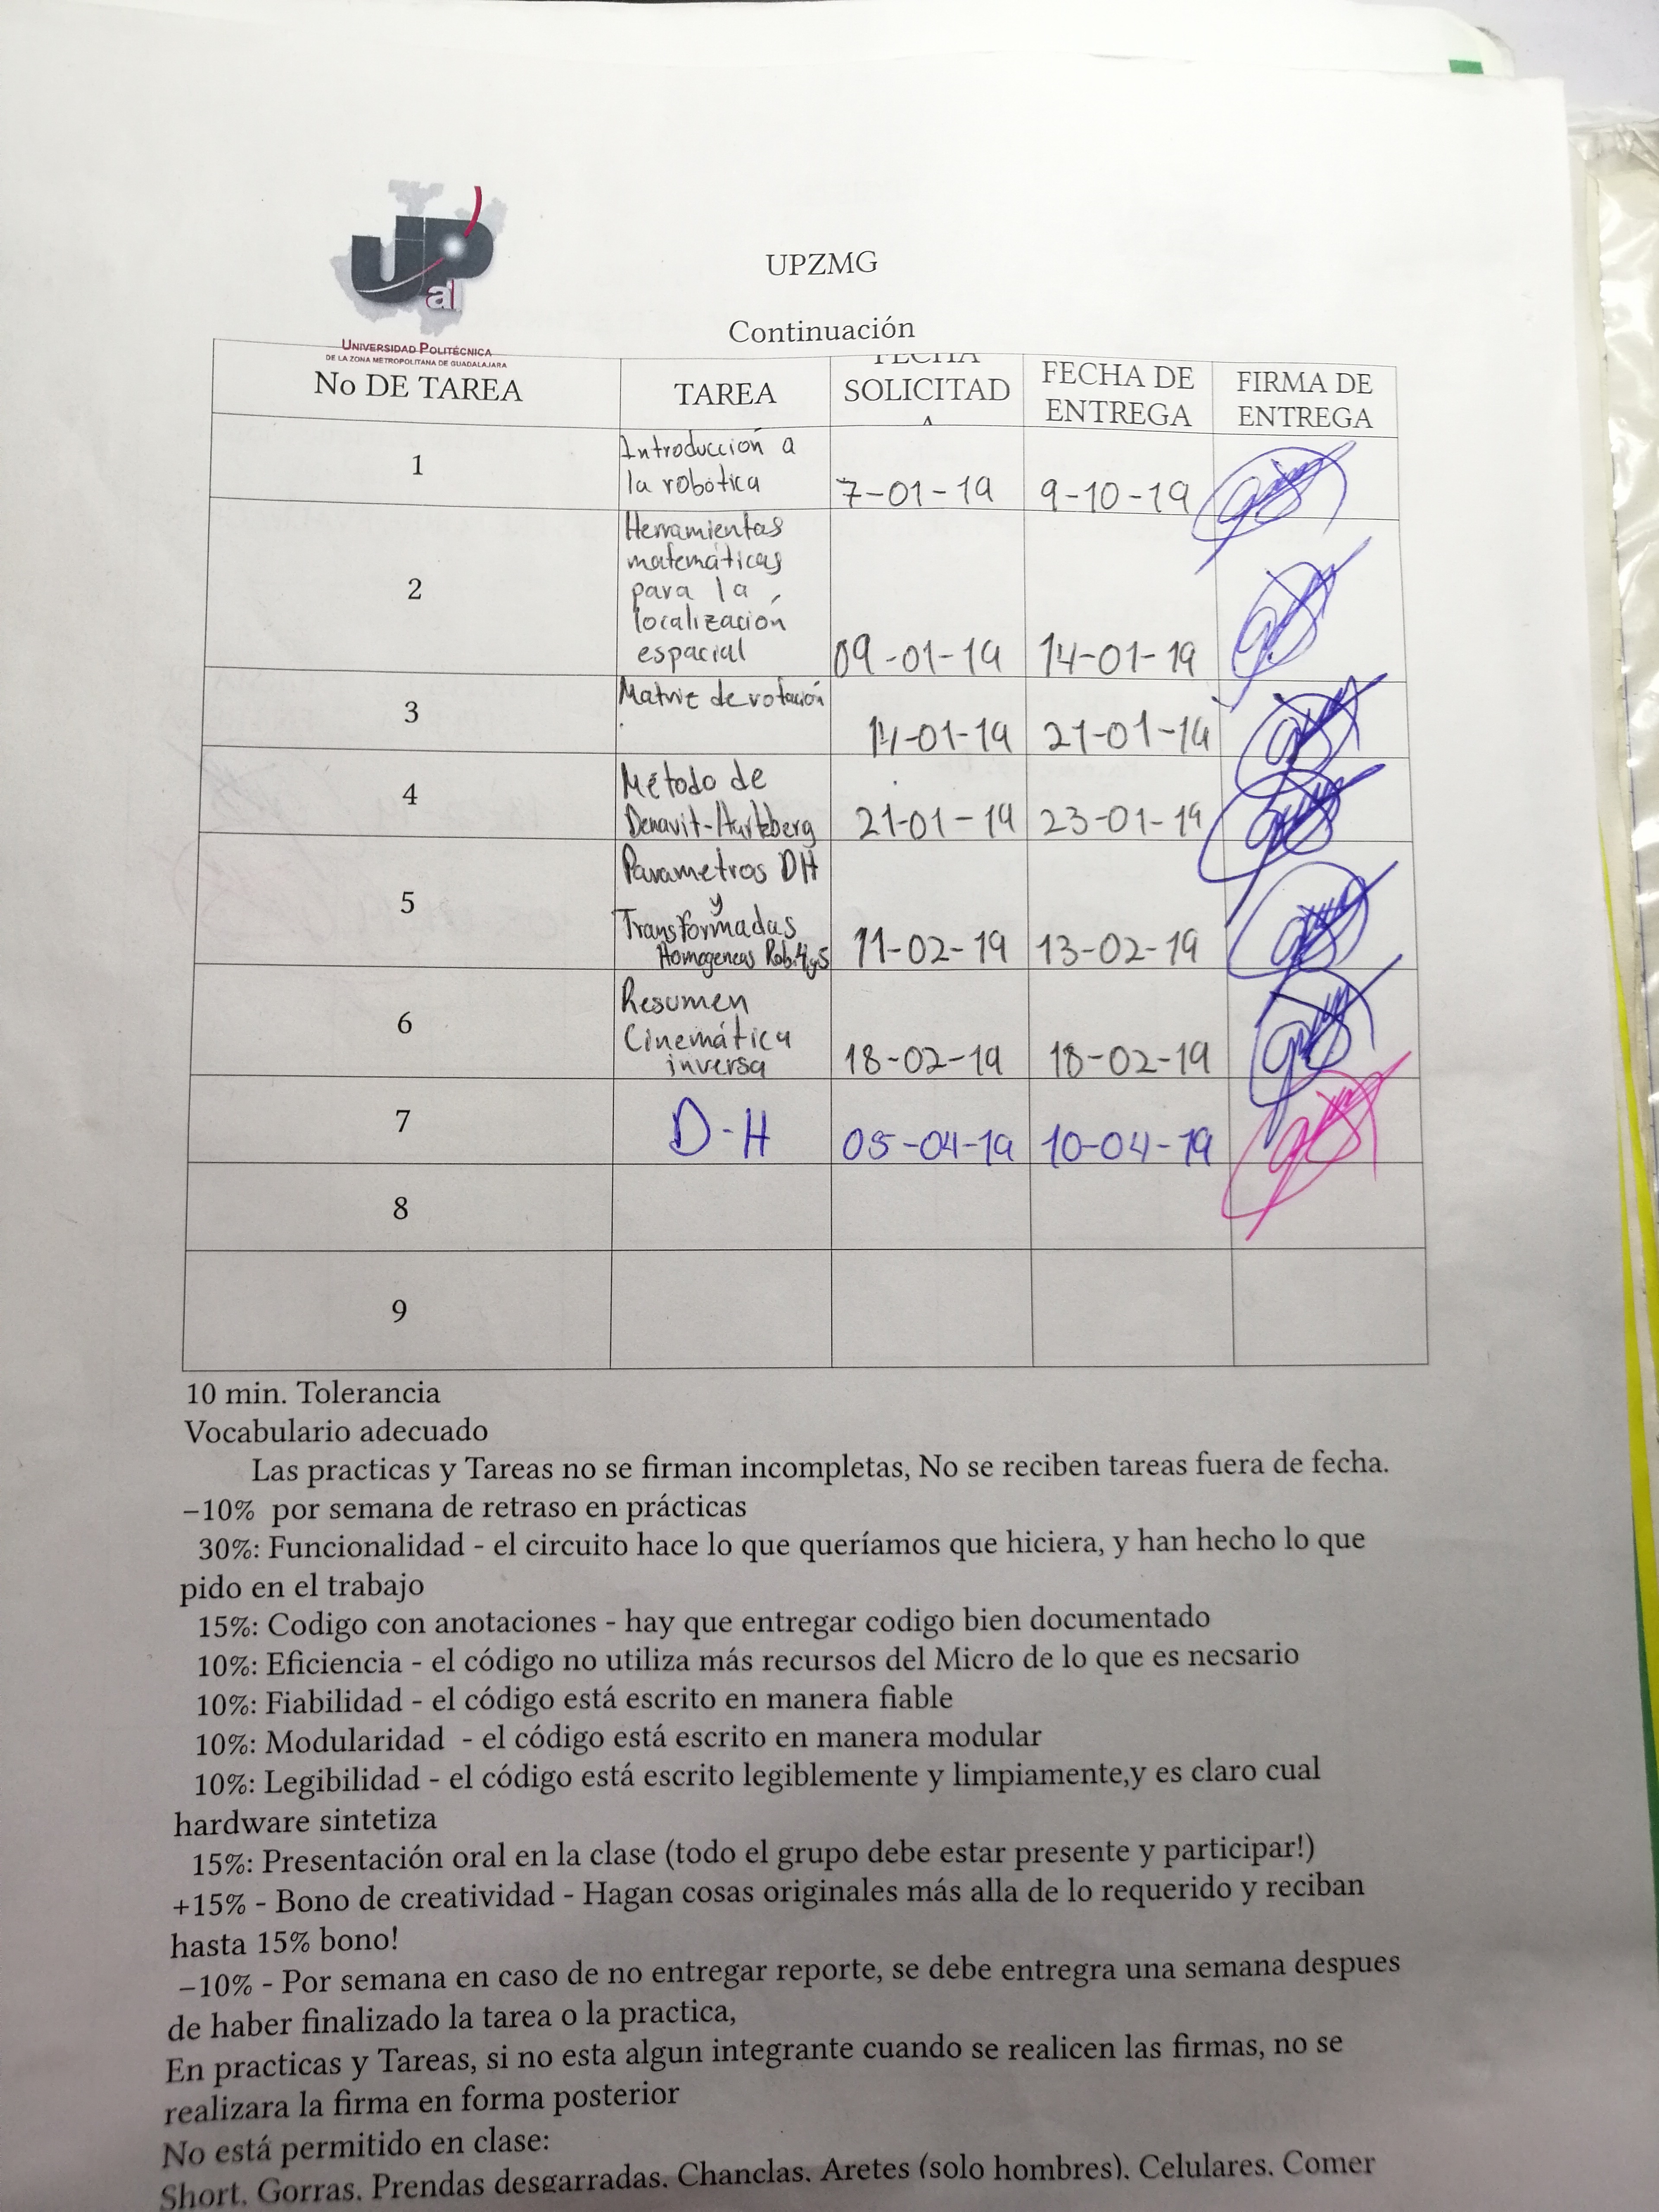 UP
al
UNIVERSIDAD POLITÉCNICA
DE LA ZONA METROPOLITANA DE GUADALAJARA
UPZMG
Continuación
No DE TAREA
TAREA
FECHA
SOLICITAD
A
FECHA DE
ENTREGA
FIRMA DE
ENTREGA
1
Introducción a
la robótica
7-01-19
9-10-19
2
Herramientas
matemáticas
para la
localización
espacial
09-01-19
14-01-19
3
Matriz de rotación
14-01-19
21-01-19
4
Método de
Denavit-Hartberg
21-01-19
23-01-19
5
Parametros DH
y
Transformadas
Homogeneas Rob. 4y5
11-02-19
13-02-19
6
Resumen
Cinemática
inversa
18-02-19
18-02-19
7
D-H
05-04-19
10-04-19
8
9
10 min. Tolerancia
Vocabulario adecuado
Las practicas y Tareas no se firman incompletas, No se reciben tareas fuera de fecha.
–10% por semana de retraso en prácticas
30%: Funcionalidad - el circuito hace lo que queríamos que hiciera, y han hecho lo que
pido en el trabajo
15%: Codigo con anotaciones - hay que entregar codigo bien documentado
10%: Eficiencia - el código no utiliza más recursos del Micro de lo que es necsario
10%: Fiabilidad - el código está escrito en manera fiable
10%: Modularidad - el código está escrito en manera modular
10%: Legibilidad - el código está escrito legiblemente y limpiamente,y es claro cual
hardware sintetiza
15%: Presentación oral en la clase (todo el grupo debe estar presente y participar!)
+15% - Bono de creatividad - Hagan cosas originales más alla de lo requerido y reciban
hasta 15% bono!
–10% - Por semana en caso de no entregar reporte, se debe entregra una semana despues
de haber finalizado la tarea o la practica,
En practicas y Tareas, si no esta algun integrante cuando se realicen las firmas, no se
realizara la firma en forma posterior
No está permitido en clase:
Short, Gorras, Prendas desgarradas, Chanclas, Aretes (solo hombres), Celulares, Comer